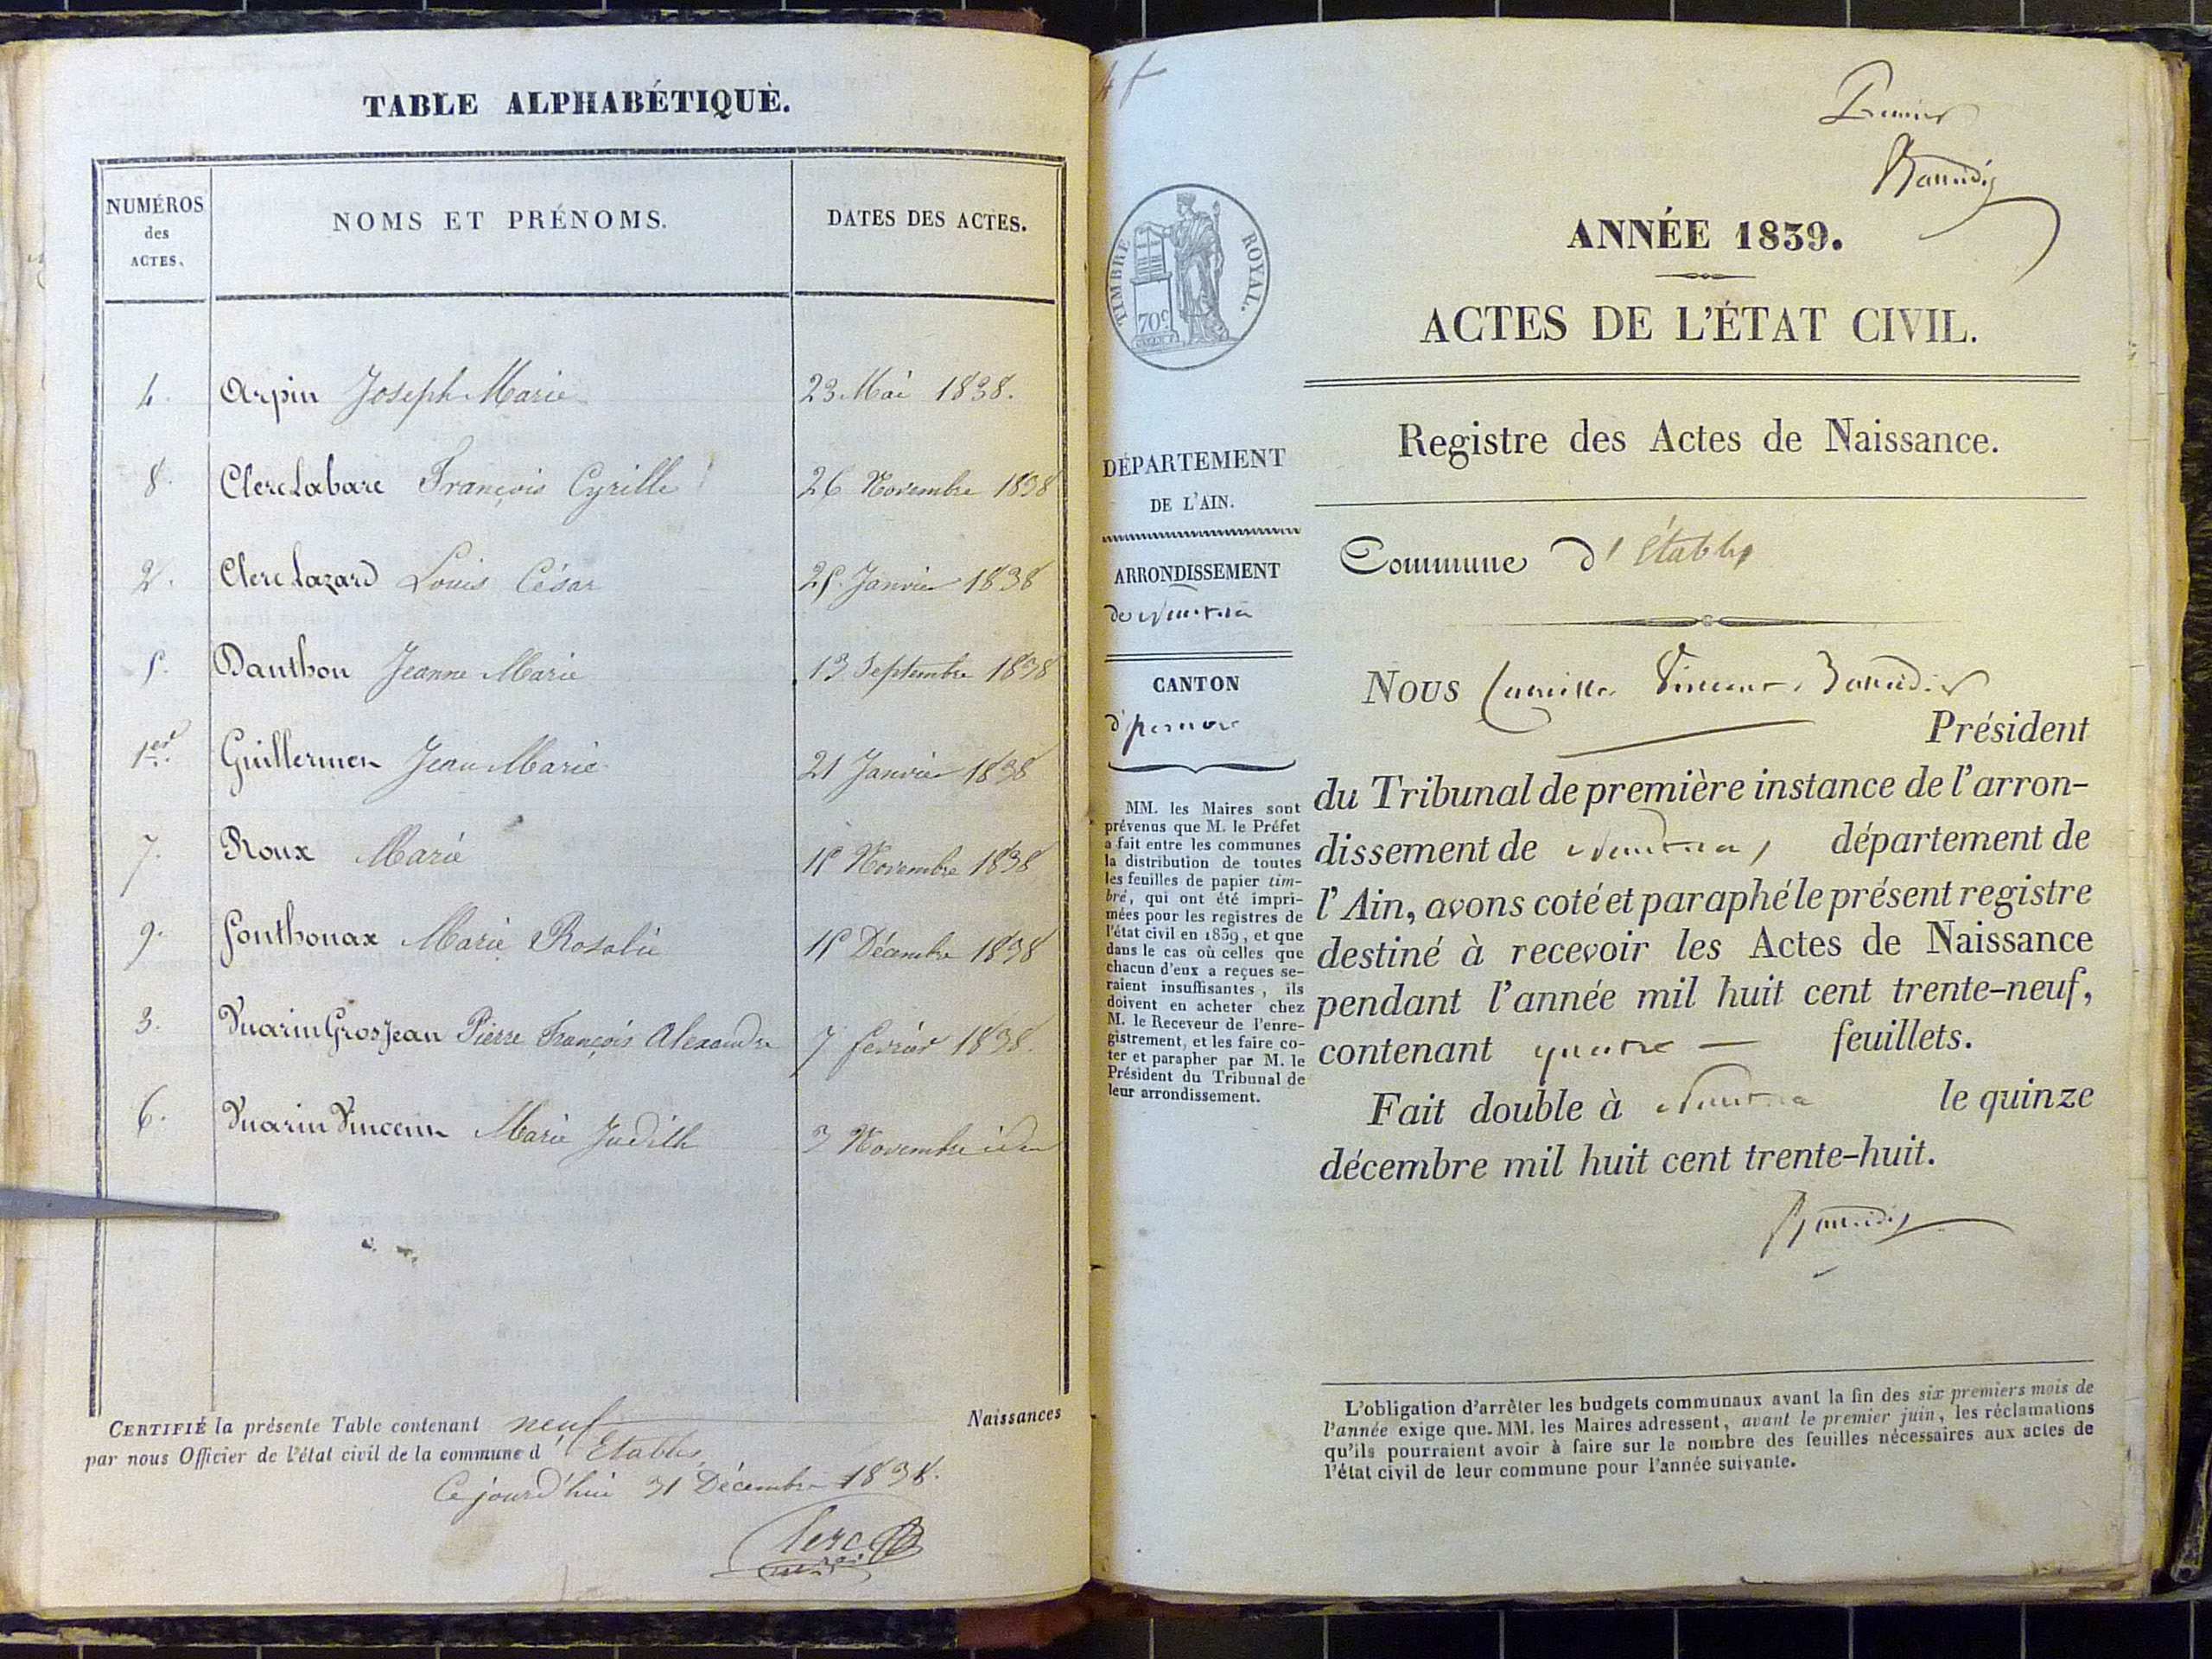 TABLE ALPHABÉTIQUE.
NUMÉROS des ACTES.
NOMS ET PRÉNOMS.
DATES DES ACTES.
4. Arpin Joseph Marie 23 Mai 1838.
8. Clerc Labare François Cyrille 26 Novembre 1838
2. Clerc Lazard Louis César 25 Janvier 1838
5. Danthon Jeanne Marie 13 Septembre 1838
1er. Guillermen Jean Marie 21 Janvier 1838
7. Roux Marie 15 Novembre 1838
9. Sonthonax Marie Rosalie 15 Décembre 1838
3. Vuarin Gros Jean Pierre François Alexandre 7 février 1838.
6. Vuarin Vincent Marie Judith 3 Novembre idem
CERTIFIÉ la présente Table contenant neuf Naissances
par nous Officier de l'état civil de la commune d'Etables
Ce jourd'hui 31 Décembre 1838.
Clerc
Premier
TIMBRE ROYAL.
70c
DÉPARTEMENT
DE L'AIN.
ARRONDISSEMENT
de Nantua
CANTON
d'Izernore
MM. les Maires sont
prévenus que M. le Préfet
a fait entre les communes
la distribution de toutes
les feuilles de papier tim-
bré, qui ont été impri-
mées pour les registres de
l'état civil en 1839, et que
dans le cas où celles que
chacun d'eux a reçues se-
raient insuffisantes, ils
doivent en acheter chez
M. le Receveur de l'enre-
gistrement, et les faire co-
ter et parapher par M. le
Président du Tribunal de
leur arrondissement.
ANNÉE 1839.
ACTES DE L'ÉTAT CIVIL.
Registre des Actes de Naissance.
Commune d'Etables
NOUS Camille Vincent
Président
du Tribunal de première instance de l'arron-
dissement de Nantua, département de
l'Ain, avons coté et paraphé le présent registre
destiné à recevoir les Actes de Naissance
pendant l'année mil huit cent trente-neuf,
contenant quatre feuillets.
Fait double à Nantua le quinze
décembre mil huit cent trente-huit.
L'obligation d'arrêter les budgets communaux avant la fin des six premiers mois de
l'année exige que MM. les Maires adressent, avant le premier juin, les réclamations
qu'ils pourraient avoir à faire sur le nombre des feuilles nécessaires aux actes de
l'état civil de leur commune pour l'année suivante.